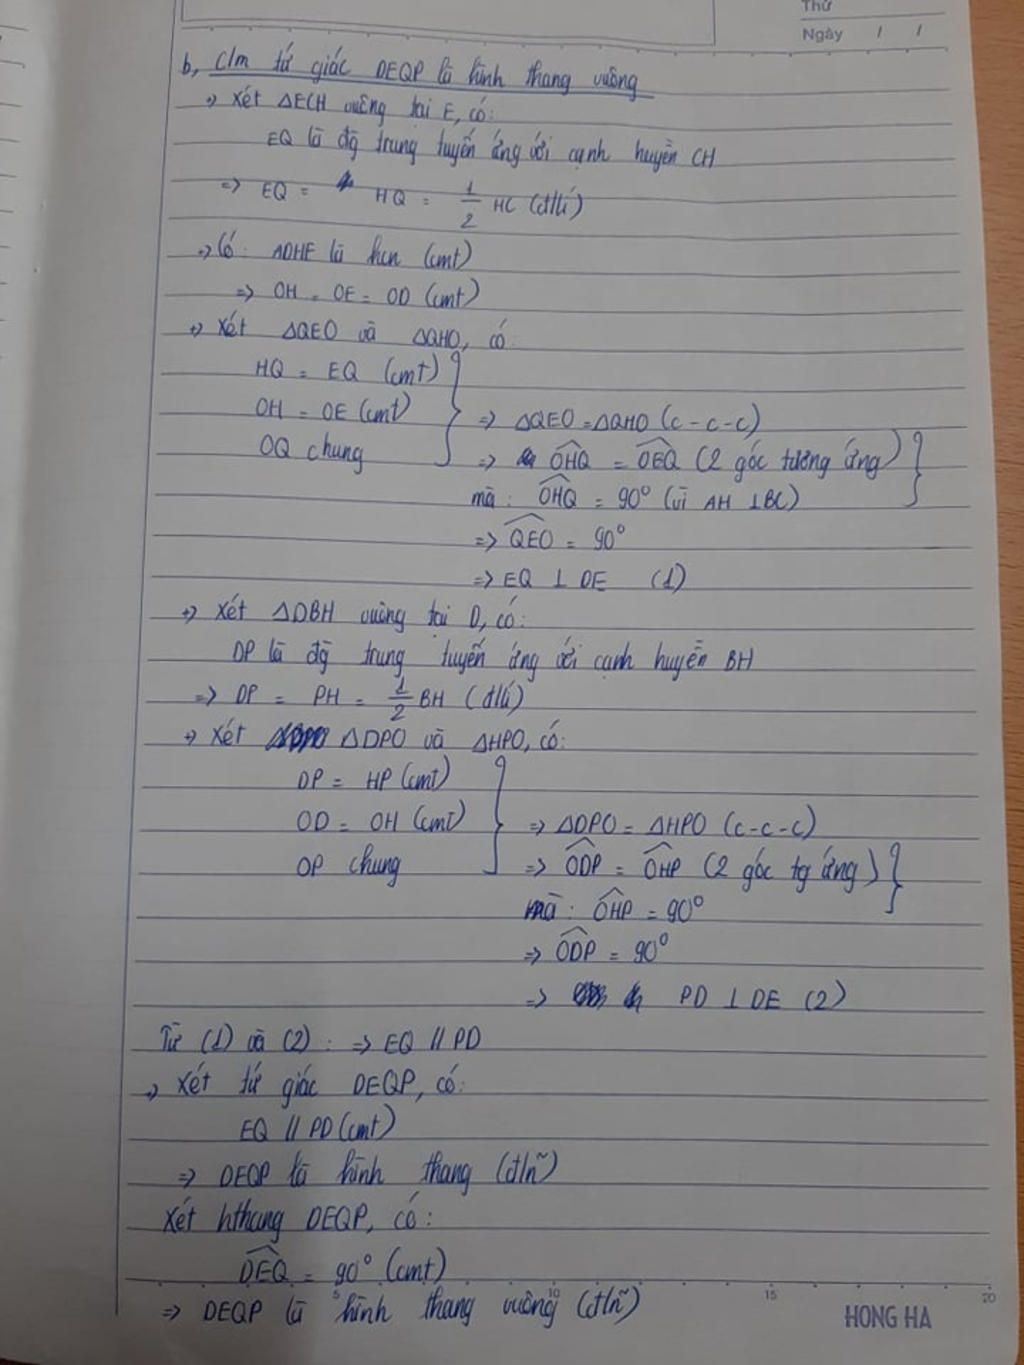 Thứ
Ngày / /
b, C/m tứ giác DEQP là hình thang vuông
→ Xét ΔECH vuông tại E, có:
EQ là đg trung tuyến ứng với cạnh huyền CH
=> EQ = HQ = 1/2 HC (đ/lí)
→ Có: ADHE là hcn (cmt)
=> OH = OE = OD (cmt)
→ Xét ΔQEO và ΔQHO, có:
HQ = EQ (cmt)
OH = OE (cmt) => ΔQEO = ΔQHO (c-c-c)
OQ chung => OHQ = OEQ (2 góc tương ứng)
mà: OHQ = 90° (vì AH ⊥ BC)
=> QEO = 90°
=> EQ ⊥ DE (1)
→ Xét ΔDBH vuông tại D, có:
DP là đg trung tuyến ứng với cạnh huyền BH
=> DP = PH = 1/2 BH (đ/lí)
→ Xét ΔDPO và ΔHPO, có:
DP = HP (cmt)
OD = OH (cmt) => ΔDPO = ΔHPO (c-c-c)
OP chung => ODP = OHP (2 góc tg ứng)
mà: OHP = 90°
=> ODP = 90°
=> PD ⊥ DE (2)
Từ (1) và (2): => EQ // PD
→ Xét tứ giác DEQP, có:
EQ // PD (cmt)
=> DEQP là hình thang (đ/n~)
Xét hthang DEQP, có:
DEQ = 90° (cmt)
=> DEQP là hình thang vuông (đ/n~)
5 10 15 20
HONG HA